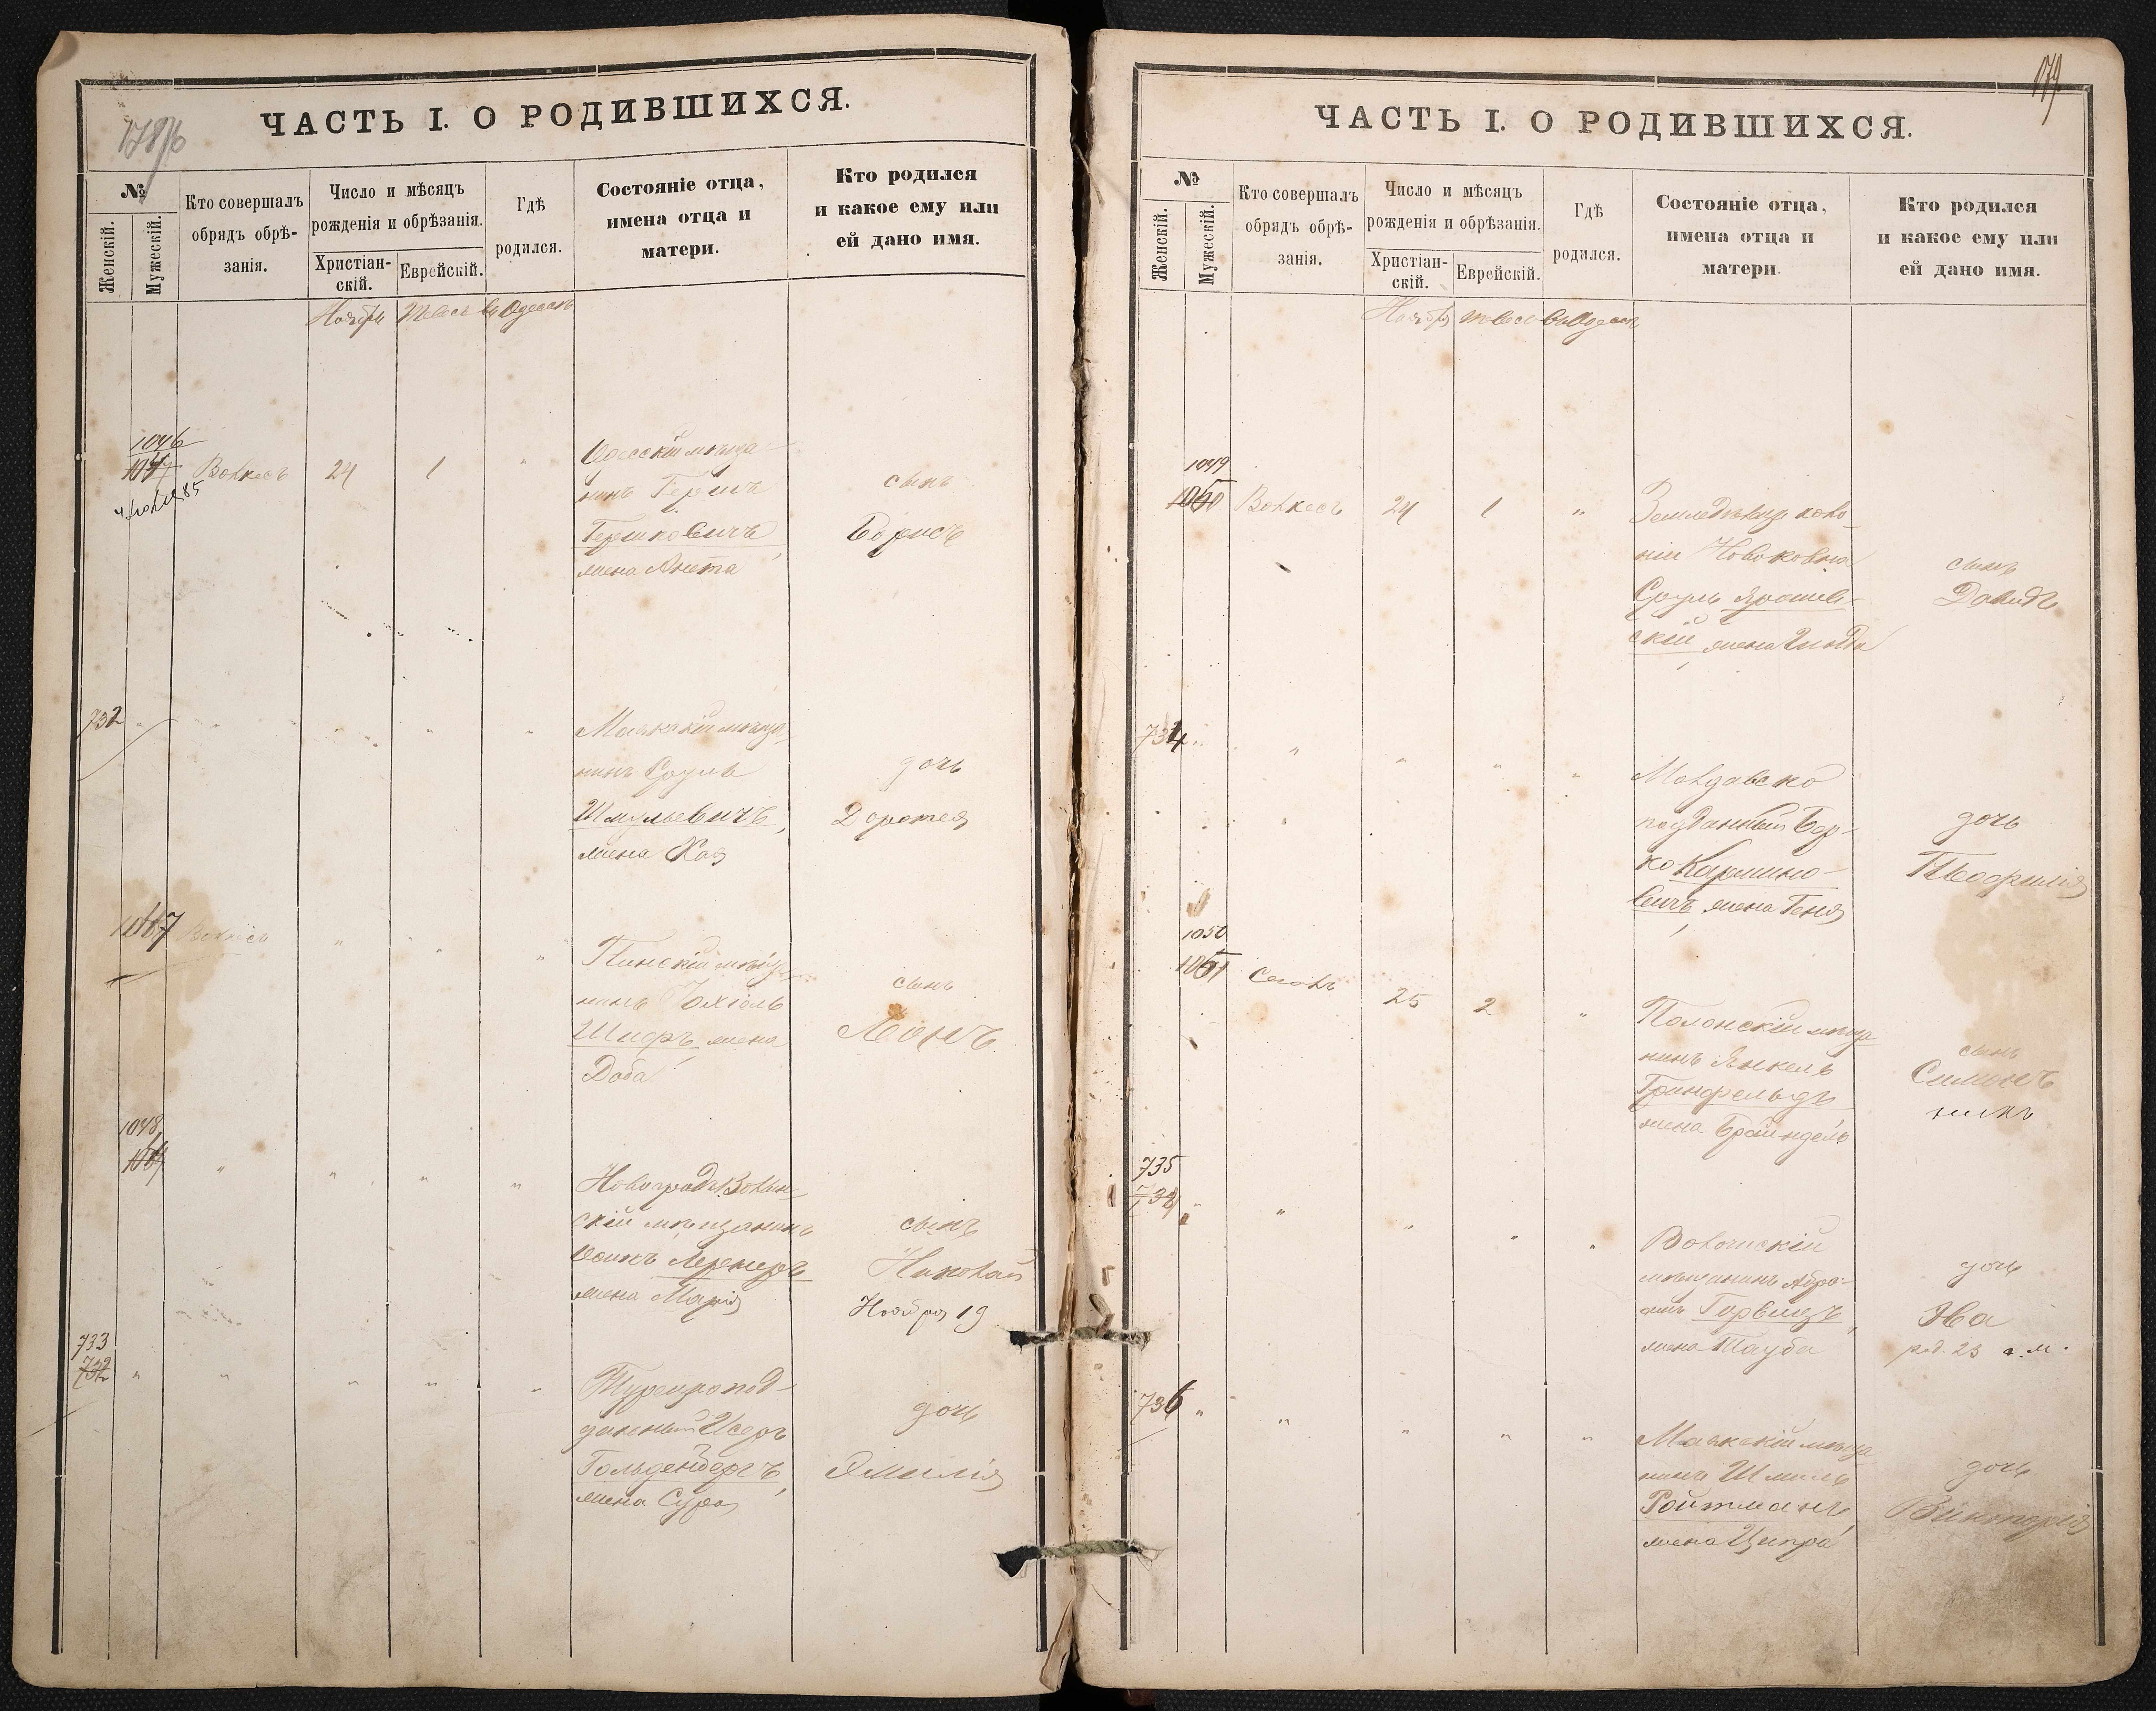 ЧАСТЬ I. О РОДИВШИХСЯ.
№
Женскій.
Мужескій.
Кто совершалъ
обрядъ обрѣ-
занія.
Число и мѣсяцъ
рожденія и обрѣзанія.
Христіан-
скій.
Еврейскій.
Гдѣ
родился.
Состояніе отца,
имена отца и
матери.
Кто родился
и какое ему или
ей дано имя.
Ноябрь Тевесъ въ Одессѣ
1046
Волкесъ 24 1 "
Одесскій мѣща-
нинъ Гершъ
Гершковичъ,
жена Анета
сынъ
Борисъ
732
Маякскій мѣща-
нинъ Сруль
Шмулевичъ,
жена Хая
дочь
Доротея
1047 Волкесъ " " "
Пинскій мѣща-
нинъ
Шифръ, жена
Доба
сынъ
Леонъ
1048
" " " "
Новоградъ Волын-
скій мѣщанинъ
Осипъ Лернеръ
жена Марія
сынъ
Николай
Ноября 19
733
732 " " " " "
Турецкопод-
данный Исеръ
Гольденбергъ,
жена Сура
дочь
Эмилія
179
ЧАСТЬ I. О РОДИВШИХСЯ.
№
Женскій.
Мужескій.
Кто совершалъ
обрядъ обрѣ-
занія.
Число и мѣсяцъ
рожденія и обрѣзанія.
Христіан-
скій.
Еврейскій.
Гдѣ
родился.
Состояніе отца,
имена отца и
матери.
Кто родился
и какое ему или
ей дано имя.
Ноябрь Тевесъ въ Одессѣ
1049
1050 Волкесъ 24 1 "
Земледѣлецъ коло-
ніи Новоковна
Сруль Ярошев-
скій, жена
сынъ
Давидъ
734 " " " " "
Молдавско
подданный Бер-
ко Кармино-
вичъ, жена Геня
дочь
Теофилія
1050
1051 25 2 "
Полонскій мѣща
нинъ Янкель
Гринфельдъ
жена Брайндель
сынъ
Симонъ
735
734 " " " " "
Волочискій
мѣщанинъ Абра-
амъ Горвицъ,
жена Тауба
дочь
Ева
род. 23 с. м.
736 " " " " "
Маякскій мѣща
нинъ Шмиль
Ройтманъ,
жена Ципра
дочь
Викторія